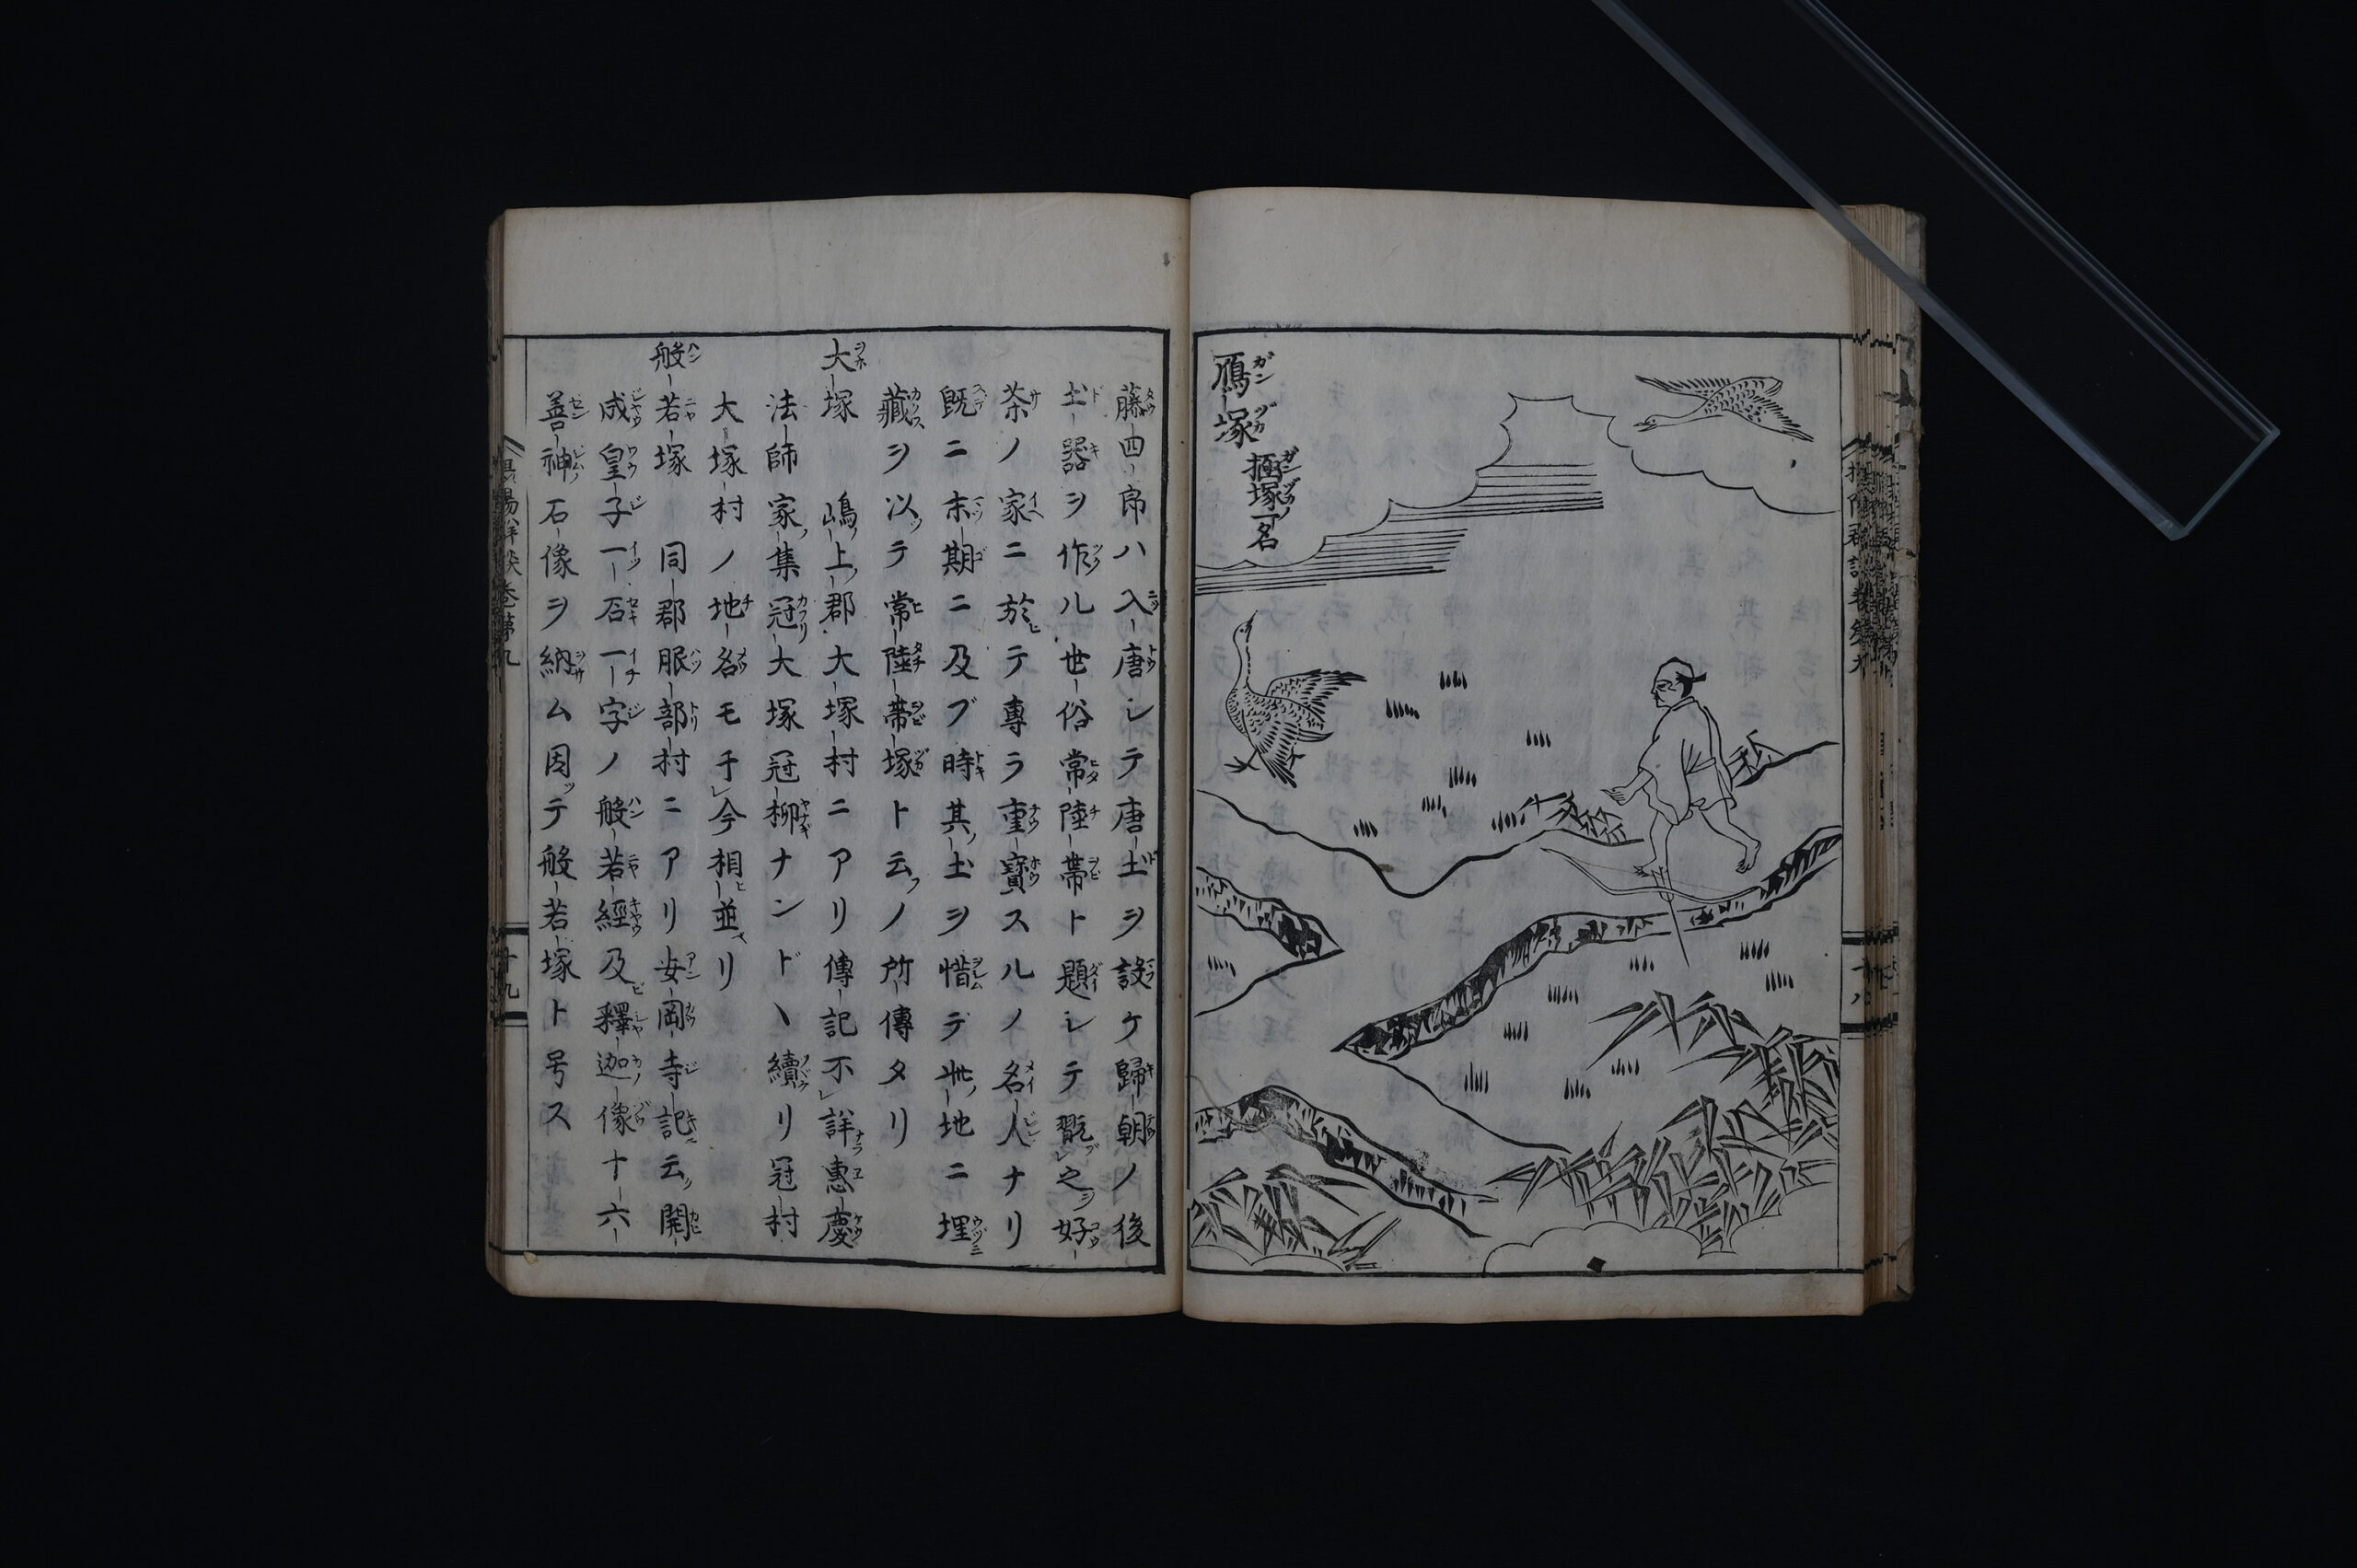 雁塚
極塚一名
藤四郎ハ入唐シテ唐土ヲ設ケ歸朝ノ後
土器ヲ作ル世俗常陸帯ト題シテ翫之好
茶ノ家ニ於テ專ラ重寳スルノ名人ナリ
既ニ末期ニ及ブ時其土ヲ惜テ此地ニ埋
藏ヲ以テ常陸帯塚ト云ノ所傳タリ
大塚 嶋上郡大塚村ニアリ傳記不詳惠慶
法師家集冠大塚冠柳ナンド續リ冠村
大塚村ノ地名モチ今相並リ
般若塚 同郡服部村ニアリ安岡寺記云開
成皇子一石一字ノ般若經及釋迦像十六
善神石像ヲ納ム因テ般若塚ト号ス
十九